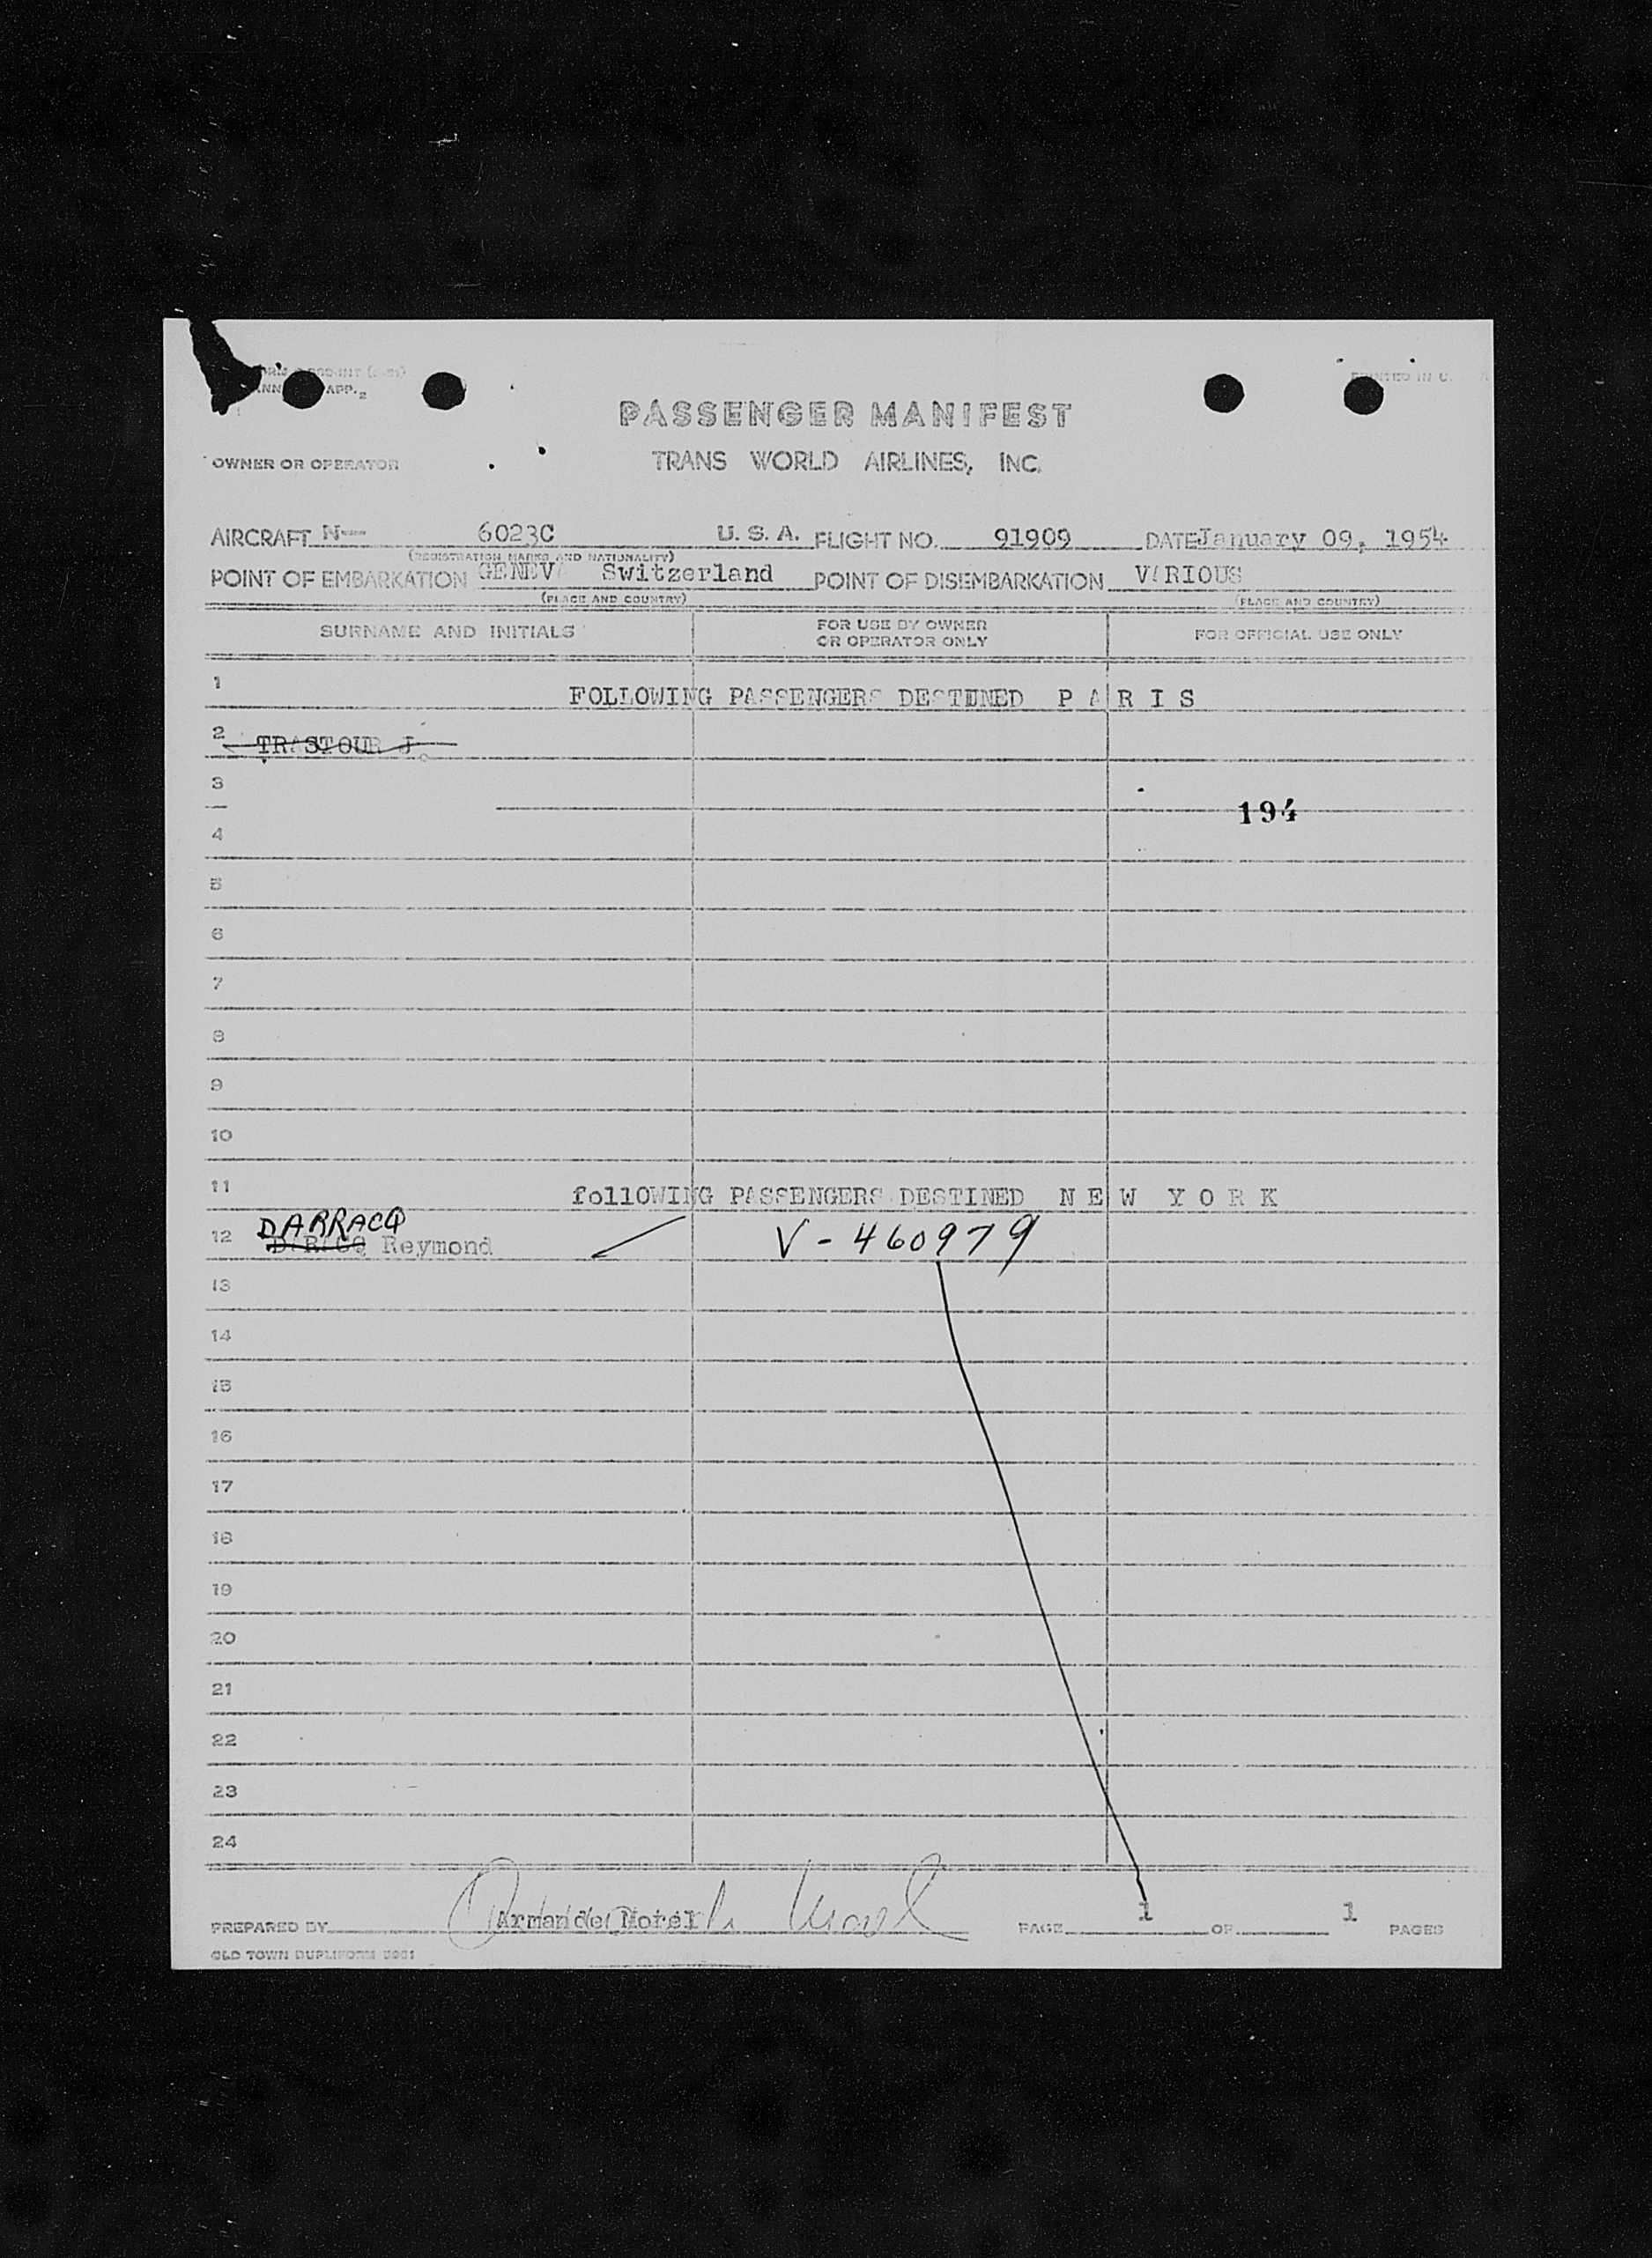 APP. 2
PASSENGER MANIFEST
OWNER OR OPERATOR TRANS WORLD AIRLINES, INC.
AIRCRAFT N--- 6023C U. S. A. FLIGHT NO. 91909 DATE January 09, 1954
(REGISTRATION MARKS AND NATIONALITY)
POINT OF EMBARKATION GENEVA Switzerland POINT OF DISEMBARKATION VARIOUS
(PLACE AND COUNTRY) (PLACE AND COUNTRY)
SURNAME AND INITIALS FOR USE BY OWNER OR OPERATOR ONLY FOR OFFICIAL USE ONLY
1 FOLLOWING PASSENGERS DESTINED P A R I S
2 TRASTOUR J.
3
194
4
5
6
7
8
9
10
11 follOWING PASSENGERS DESTINED N E W Y O R K
DARRACQ
12 DARACQ Reymond V-460979
13
14
15
16
17
18
19
20
21
22
23
24
PREPARED BY Armande Morel PAGE 1 OF 1 PAGES
OLD TOWN DUPLIFORM